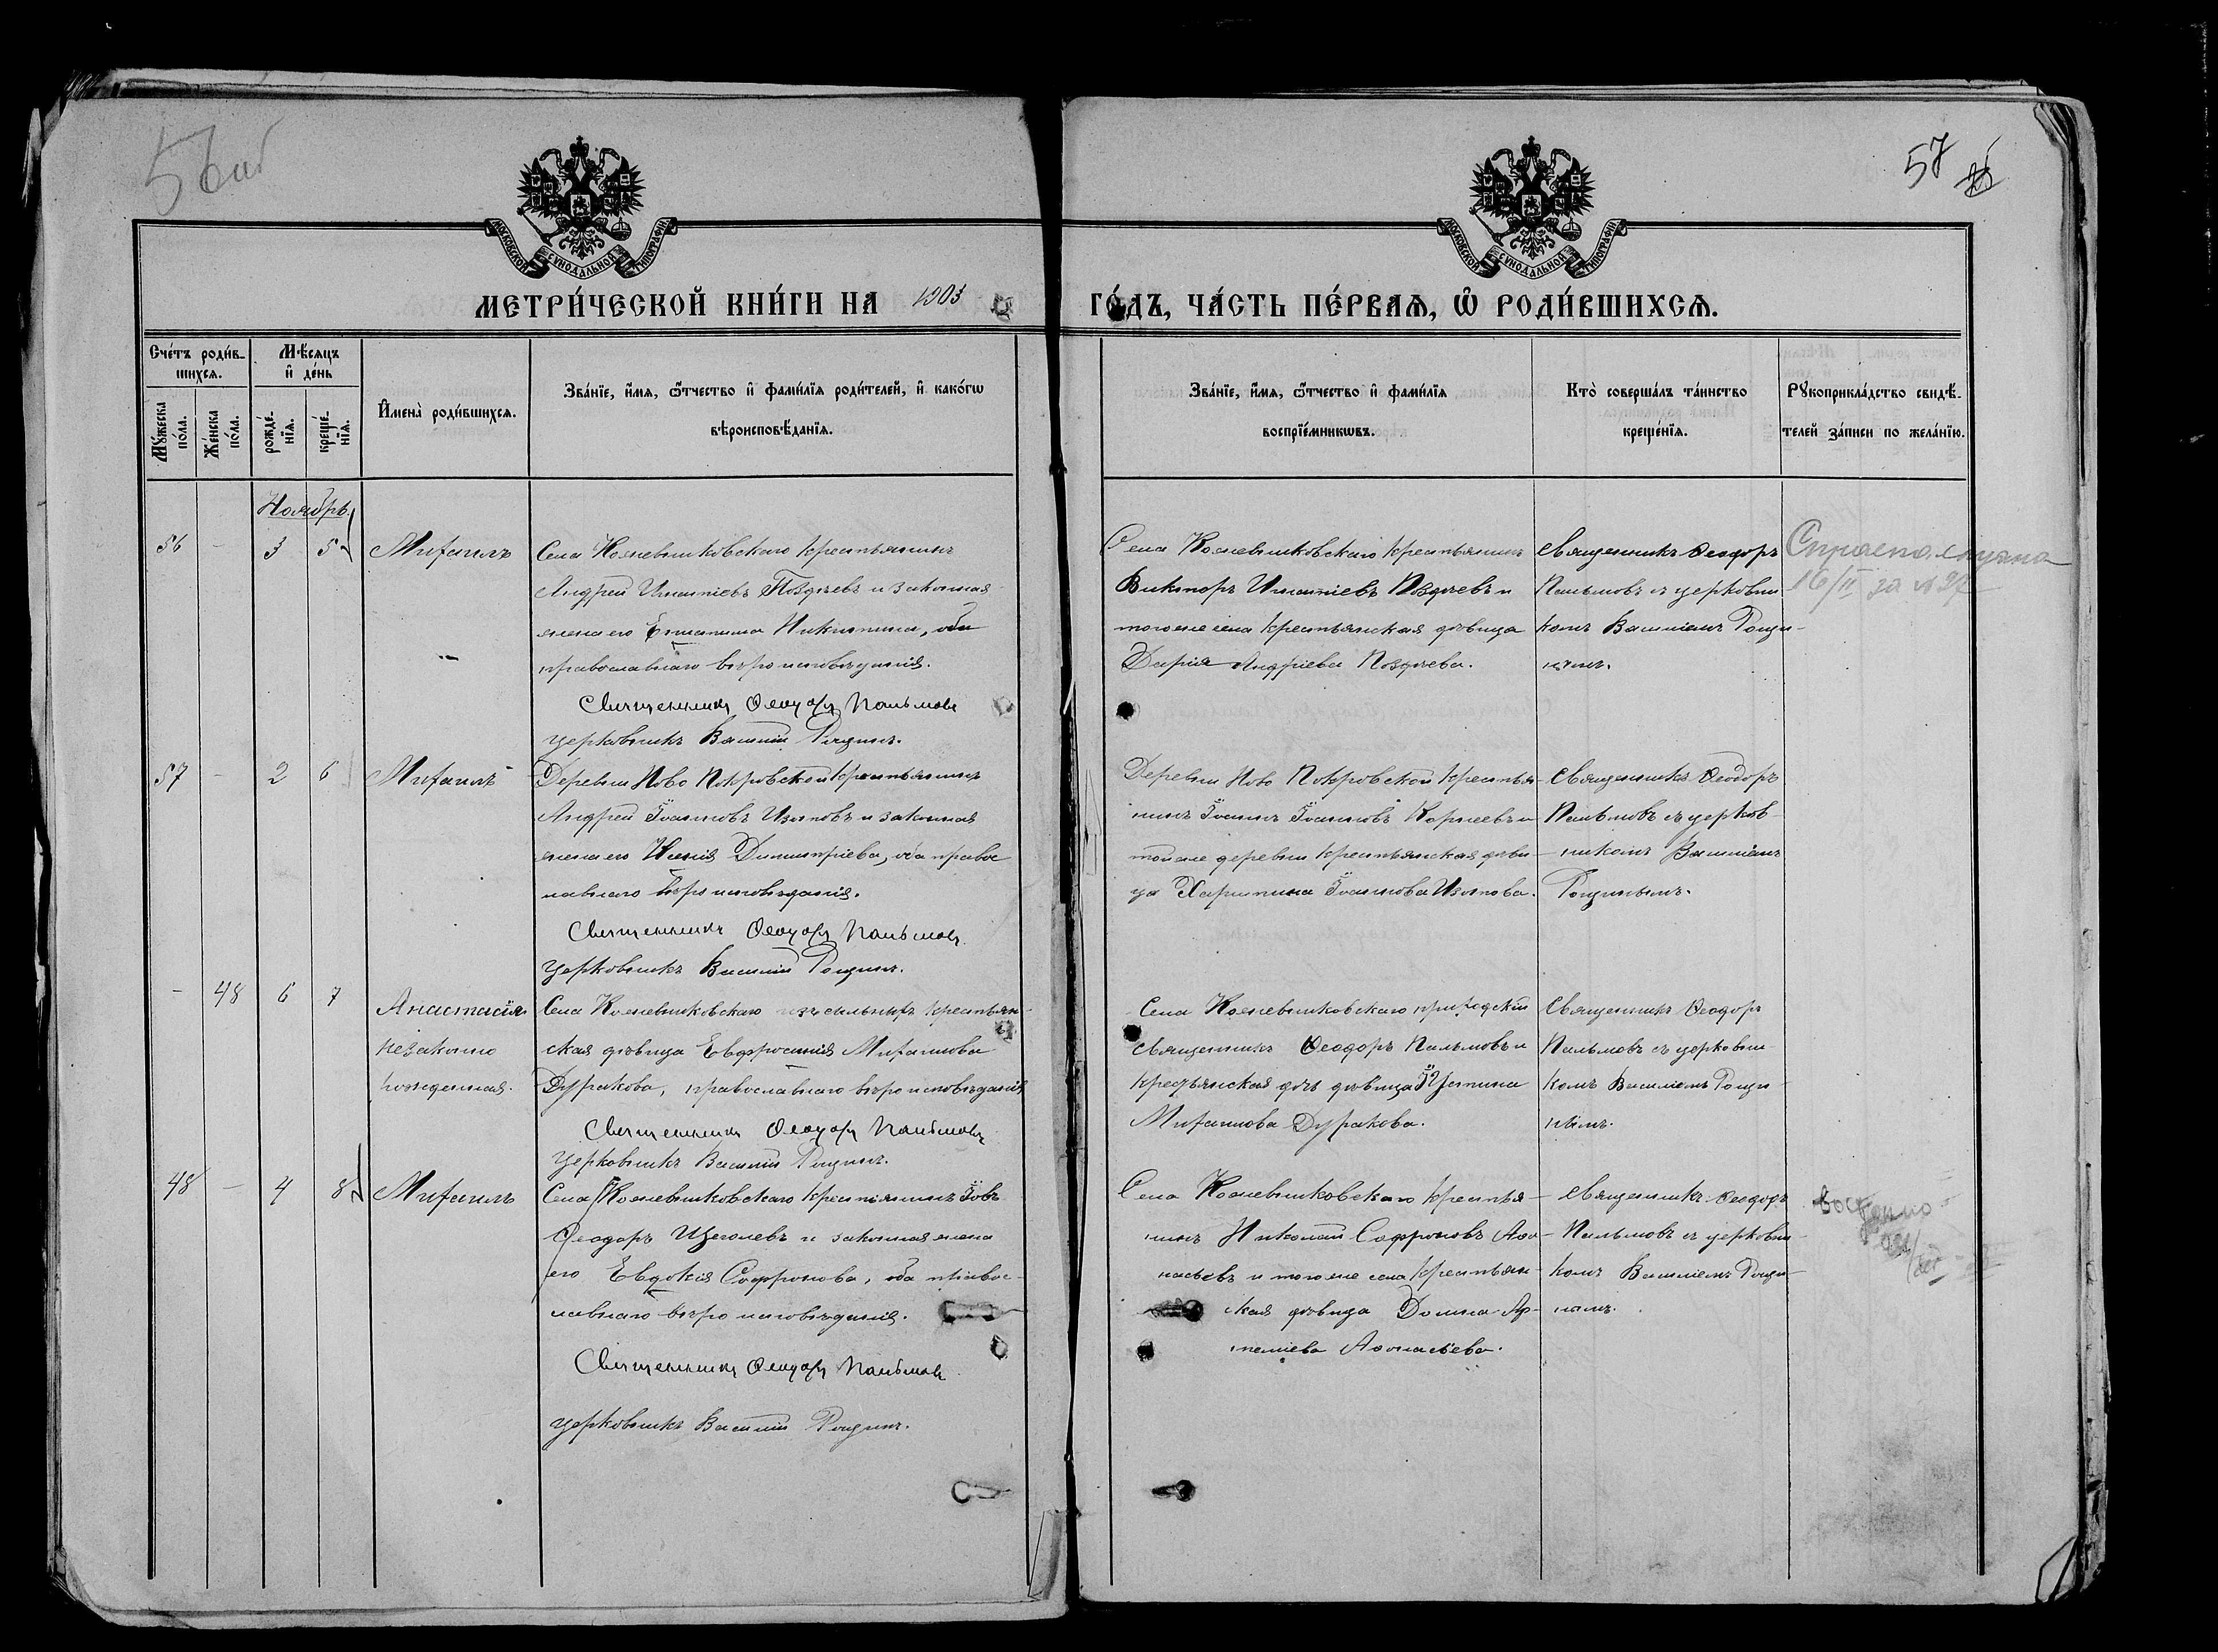 56об
57
МОСКОВСКОЙ СѴНОДАЛЬНОЙ ТИПОГРАФІИ
МОСКОВСКОЙ СѴНОДАЛЬНОЙ ТИПОГРАФІИ
МЕТРИ́ЧЕСКОЙ КНИ́ГИ НА 1903 ГО́ДЪ, ЧА́СТЬ ПЕ́РВАѦ, Ѽ РОДИ́ВШИХСѦ.
Сче́тъ роди́в-
шихсѧ.
Мꙋ́жеска
по́ла.
Же́нска
по́ла.
Мѣ́сѧцъ
и҆ де́нь
рожде́-
нїѧ.
креще́-
нїѧ.
И҆мена̀ роди́вшихсѧ.
Зва́нїе, и҆́мѧ, ѻ҆́тчество и҆ фами́лїѧ роди́телей, и҆ како́гѡ
вѣроисповѣ́данїѧ.
Зва́нїе, и҆́мѧ, ѻ҆́тчество и҆ фами́лїѧ
воспрїе́мникѡвъ.
Кто̀ соверша́лъ та́инство
креще́нїѧ.
Рꙋкоприкла́дство свидѣ́-
телей за́писи по жела́нїю.
Ноябрь.
56 - 3 5 Михаилъ
Села Кожевниковскаго крестьянинъ
Андрей Игнатіевъ Поздѣевъ и законная
жена его Никитина, оба
православнаго вѣроисповѣданія.
Священникъ Ѳеодоръ Пальмовъ
Церковникъ Василій Рощинъ.
Села Кожевниковскаго крестьянинъ
Викторъ Игнатіевъ Поздѣевъ и
тогоже села крестьянская дѣвица
Дарія Андріева Поздѣева.
Священникъ Ѳеодоръ
Пальмовъ съ церковни-
комъ Василіемъ Рощи-
нымъ.
16/II за № 27
57 - 2 6 Михаилъ
Деревни Ново Покровской крестьянинъ
Андрей Іоанновъ Изотовъ и законная
жена его Ксенія Димитріева, оба правос
лавнаго вѣроисповѣданія.
Священникъ Ѳеодоръ Пальмовъ
Церковникъ Василій Рощинъ.
Деревни Ново Покровской крестья-
нинъ Іоаннъ Іоанновъ Корнеевъ и
тойже деревни крестьянская дѣви-
ца Харитина Іоаннова Изотова.
Священникъ Ѳеодоръ
Пальмовъ съ церков-
никомъ Василіемъ
Рощинымъ.
- 48 6 7 Анастасія
незаконно
рожденная.
Села Кожевниковскаго изъ ссыльныхъ крестьян-
ская дѣвица Евфросинія Михаилова
Дуракова, православнаго вѣроисповѣданія
Священникъ Ѳеодоръ Пальмовъ
Церковникъ Василій Рощинъ.
Села Кожевниковскаго приходскій
священникъ Ѳеодоръ Пальмовъ и
крестьянская дочь дѣвица Іустина
Михаилова Дуракова.
Священникъ Ѳеодоръ
Пальмовъ съ церковни-
комъ Василіемъ Рощи-
нымъ.
48 - 4 8 Михаилъ
Села Кожевниковскаго крестьянинъ Іовъ
Ѳеодоръ Щеголевъ и законная жена
его Евдокія Софронова, оба правос-
лавнаго вѣроисповѣданія.
Священникъ Ѳеодоръ Пальмовъ
Церковникъ Василій Рощинъ.
Села Кожевниковскаго крестья-
нинъ Николай Софроновъ Аѳо-
насьевъ и тогоже села крестьян-
ская дѣвица Домна Ар-
теміева Аѳонасьева.
Священникъ Ѳеодоръ
Пальмовъ съ церковни-
комъ Василіемъ Рощи-
нымъ.